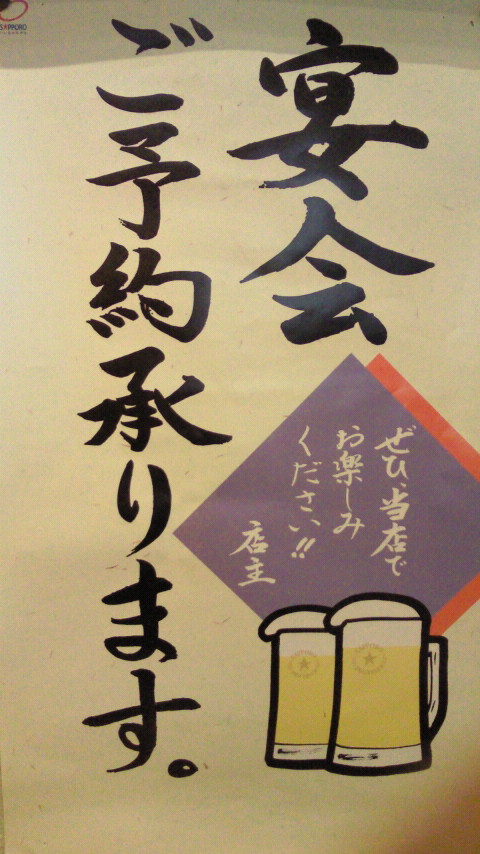 宴会
ご予約承ります。
ぜひ、当店で
お楽しみ
ください!!
店主
SAPPORO